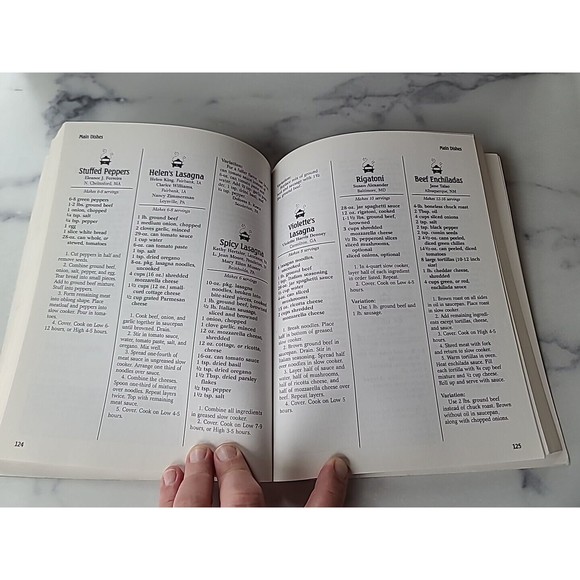 Main Dishes
Stuffed Peppers
Eleanor J. Ferreira
N. Chelmsford, MA
Makes 6-8 servings
6-8 green peppers
1-2 lbs. ground beef
1 onion, chopped
1 egg
1 slice white bread
28-oz. can whole, or
stewed, tomatoes
1. Cut peppers in half and
remove seeds.
2. Combine ground beef,
onion, salt, pepper, and egg.
Tear bread into small pieces.
Add to ground beef mixture.
3. Form remaining meat
into oblong shape. Place
meatloaf and peppers into
slow cooker. Pour in toma-
toes.
4. Cover. Cook on Low 6-
12 hours, or High 4-5 hours.
124
Helen's Lasagna
Helen King, Fairbank, IA
Clarice Williams
Fairbank, IA
Nancy Zimmerman
Loysville, PA
Makes 6-8 servings
1 lb. ground beef
1 medium onion, chopped
2 cloves garlic, minced
29-oz. can tomato sauce
1 cup water
6-oz. can tomato paste
1 tsp. salt
1 tsp. dried oregano
8-oz. pkg. lasagna noodles,
uncooked
4 cups (16 oz.) shredded
mozzarella cheese
1½ cups (12 oz.) small-
curd cottage cheese
½ cup grated Parmesan
cheese
1. Cook beef, onion, and
garlic together in saucepan
until browned. Drain.
2. Stir in tomato sauce,
water, tomato paste, salt,
and oregano. Mix well.
3. Spread one-fourth of
meat sauce in ungreased slow
cooker. Arrange one third of
noodles over sauce.
4. Combine the cheeses.
Spoon one-third of mixture
over noodles. Repeat layers
twice. Top with remaining
meat sauce.
5. Cover. Cook on Low 4-5
hours.
Variation:
Spicy Lasagna
Kathy Hertzler, Lancaster, PA
L. Jean Moore,
Mary Ellen Musser
Reinholds, PA
Makes 6 servings
10-oz. pkg. lasagna
noodles, broken into
bite-sized pieces, cooked
1 lb. ground beef, browned
½ lb. Italian sausage, sliced
and browned
1 onion, chopped
1 clove garlic, minced
12 oz. mozzarella cheese,
shredded
12 oz. cottage, or ricotta,
cheese
16-oz. can tomato sauce
1 tsp. dried basil
½ tsp. dried oregano
1½ Tbsp. dried parsley
flakes
½ tsp. pepper
1½ tsp. salt
1. Combine all ingredients
in greased slow cooker.
2. Cover. Cook on Low 7-9
hours, or High 3-5 hours.
Main Dishes
Violette's
Lasagna
Violette Harris Denney
Carrollton, GA
Makes 8 servings
8 lasagna noodles,
uncooked
1 lb. ground beef
1 tsp. Italian seasoning
28-oz. jar spaghetti sauce
4 oz. ricotta cheese
2 cups shredded
mozzarella cheese
1. Break noodles. Place
half in bottom of greased
slow cooker.
2. Brown ground beef in
saucepan. Drain. Stir in
Italian seasoning. Spread half
over noodles in slow cooker.
3. Layer half of sauce and
water, half of mushrooms,
half of ricotta cheese, and
half of mozzarella cheese over
beef. Repeat layers.
4. Cover. Cook on Low 5
hours.
Rigatoni
Susan Alexander
Baltimore, MD
Makes 10 servings
28-oz. jar spaghetti sauce
12 oz. rigatoni, cooked
1-1½ lbs. ground beef,
browned
3 cups shredded
mozzarella cheese
½ lb. pepperoni slices
sliced mushrooms,
optional
sliced onions, optional
1. In 4-quart slow cooker,
layer half of each ingredient
in order listed. Repeat.
2. Cover. Cook on Low 4-5
hours.
Variation:
Use 1 lb. ground beef and
1 lb. sausage.
Beef Enchiladas
Jane Talso
Albuquerque, NM
Makes 12-16 servings
4-lb. boneless chuck roast
2 Tbsp. oil
4 cups sliced onions
2 tsp. salt
2 tsp. black pepper
2 tsp. cumin seeds
2 4½-oz. cans peeled,
diced green chilies
14½-oz. can peeled, diced
tomatoes
8 large tortillas (10-12 inch
size)
1 lb. cheddar cheese,
shredded
4 cups green, or red,
enchilada sauce
1. Brown roast on all sides
in oil in saucepan. Place roast
in slow cooker.
2. Add remaining ingredi-
ents except tortillas, cheese,
and sauce.
3. Cover. Cook on High 4-5
hours.
4. Shred meat with fork
and return to slow cooker.
5. Warm tortillas in oven.
Heat enchilada sauce. Fill
each tortilla with ¾ cup beef
mixture and ½ cup cheese.
Roll up and serve with sauce.
Variation:
Use 2 lbs. ground beef
instead of chuck roast. Brown
without oil in saucepan,
along with chopped onions.
125